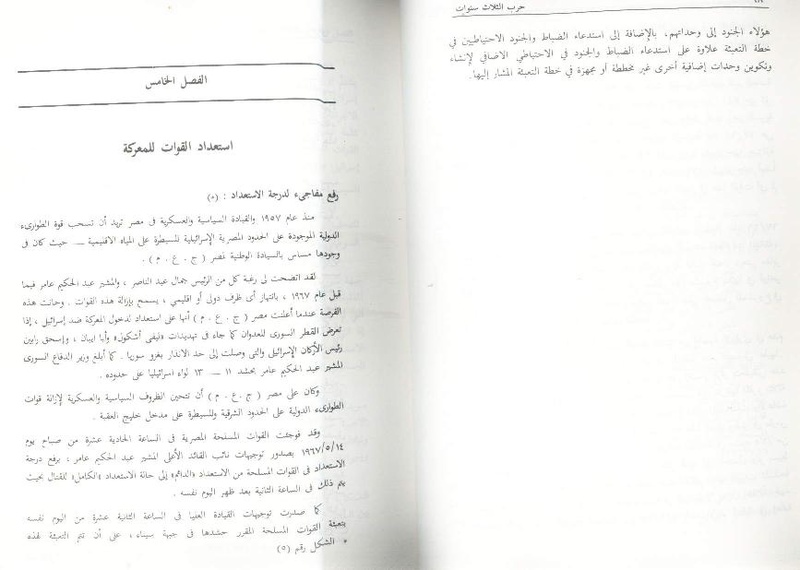 حرب الثلاث سنوات
٦٨
هؤلاء الجنود إلى وحداتهم، بالإضافة إلى استدعاء الضباط والجنود الاحتياطيين في
خطة التعبئة علاوة على استدعاء الضباط والجنود في الاحتياطي الاضافي لإنشاء
وتكوين وحدات إضافية أخرى غير مخططة أو مجهزة في خطة التعبئة المشار إليها.
الفصل الخامس
استعداد القوات للمعركة
رفع مفاجىء لدرجة الاستعداد : (٥)
منذ عام ١٩٥٧ والقيادة السياسية والعسكرية فى مصر تريد أن تسحب قوة الطوارىء
الدولية الموجودة على الحدود المصرية الإسرائيلية المسيطرة على المياه الاقليمية — حيث كان فى
وجودها مساس بالسيادة الوطنية لمصر ( ج . ع . م ) .
لقد اتضحت لى رغبة كل من الرئيس جمال عبد الناصر ، والمشير عبد الحكيم عامر فيما
قبل عام ١٩٦٧ ، بانتهاز أى ظرف دولى أو اقليمى ، يسمح بإزالة هذه القوات . وحانت هذه
الفرصة عندما أعلنت مصر ( ج . ع . م ) أنها على استعداد لدخول المعركة ضد إسرائيل ، إذا
تعرض القطر السورى للعدوان كما جاء فى تهديدات «ليفى أشكول» وأبا ايبان ، وإسحق رابين
رئيس الأركان الإسرائيلى والتى وصلت إلى حد الانذار بغزو سوريا . كما أبلغ وزير الدفاع السورى
المشير عبد الحكيم عامر بحشد ١١ — ١٣ لواء اسرائيليا على حدوده .
وكان على مصر ( ج . ع . م ) أن تتحين الظروف السياسية والعسكرية لإزالة قوات
الطوارىء الدولية على الحدود الشرقية وللسيطرة على مدخل خليج العقبة .
وقد فوجئت القوات المسلحة المصرية فى الساعة الحادية عشرة من صباح يوم
١٩٦٧/٥/١٤ بصدور توجيهات نائب القائد الأعلى المشير عبد الحكيم عامر ، برفع درجة
الاستعداد فى القوات المسلحة من الاستعداد «الدائم» إلى حالة الاستعداد «الكامل» للقتال بحيث
يتم ذلك فى الساعة الثانية بعد ظهر اليوم نفسه .
كما صدرت توجيهات القيادة العليا فى الساعة الثانية عشرة من اليوم نفسه
بتعبئة القوات المسلحة المقرر حشدها فى جبهة سيناء ، على أن تتم التعبئة لهذه
* الشكل رقم (٥)